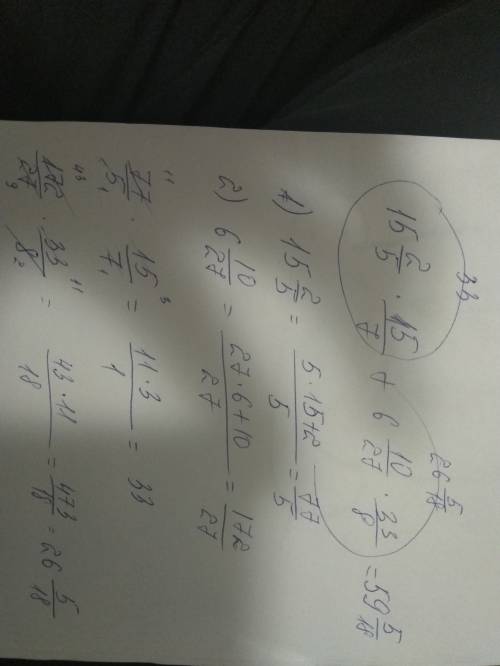 33 26 5/18
15 2/5 · 15/7 + 6 10/27 · 33/8 = 59 5/18
1) 15 2/5 = (5·15+2)/5 = 77/5
2) 6 10/27 = (27·6+10)/27 = 172/27
77/5 · 15/7 = (11·3)/1 = 33
172/27 · 33/8 = (43·11)/18 = 473/18 = 26 5/18